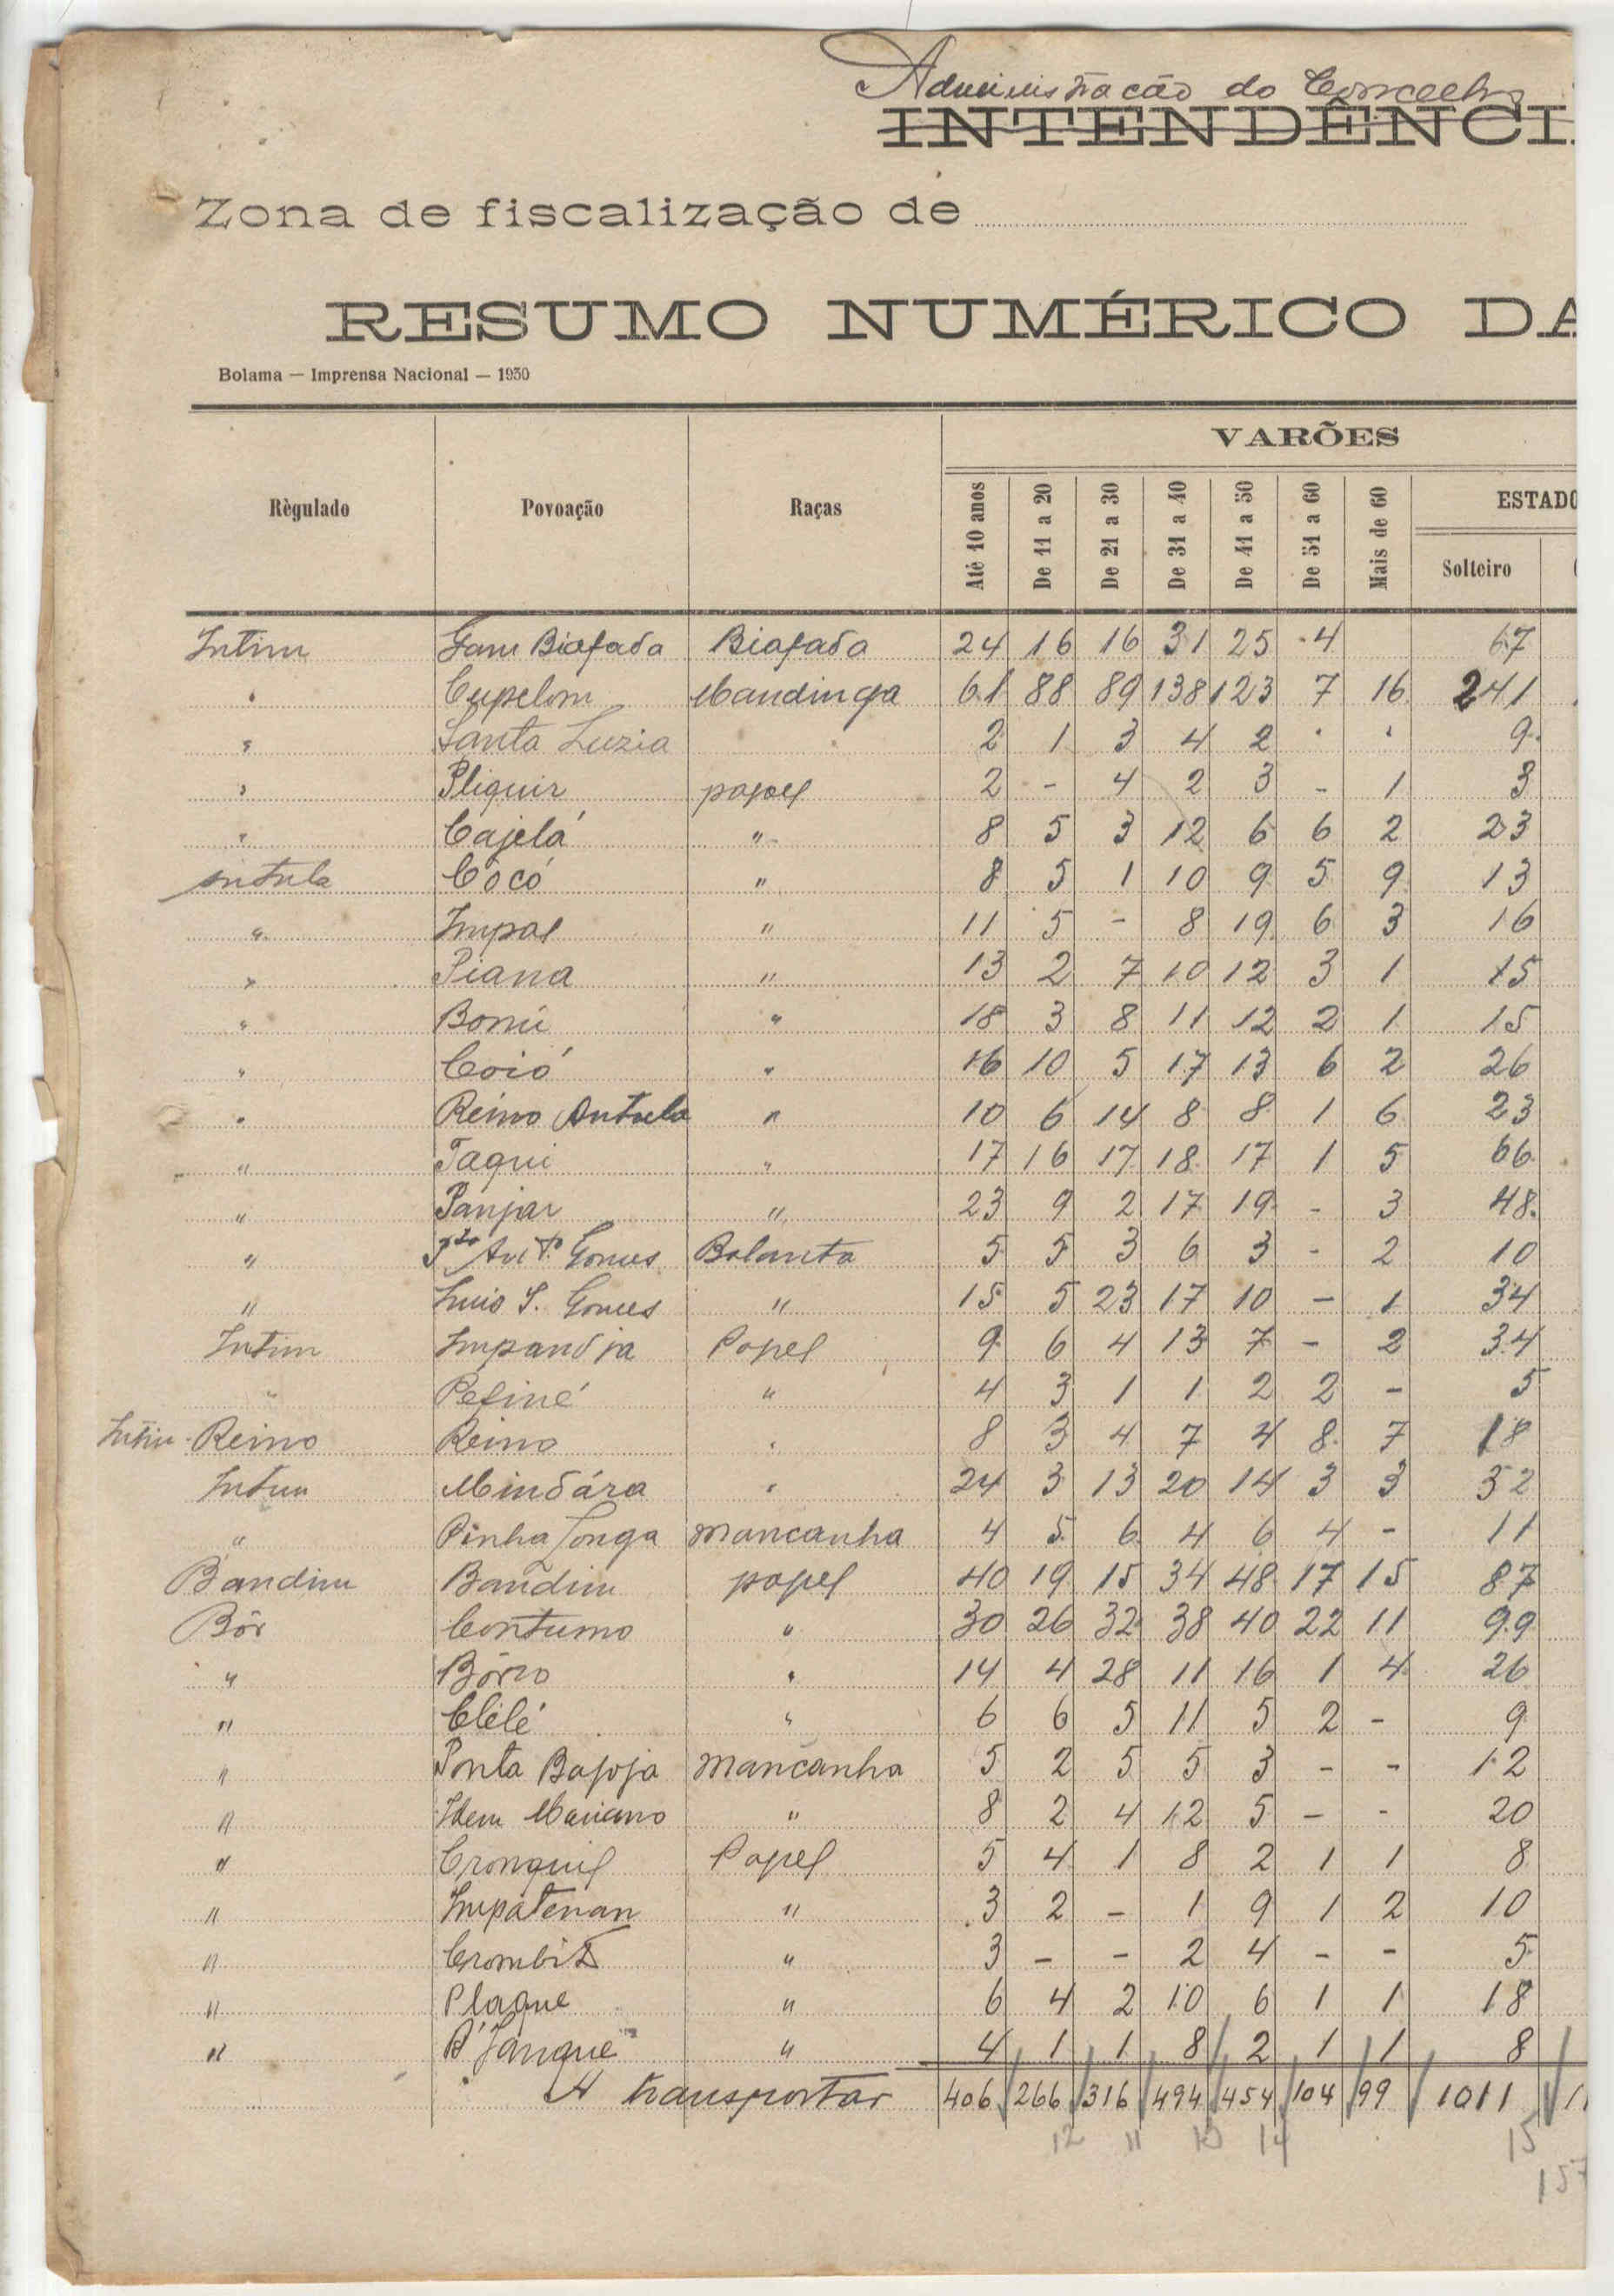 Administração do Concelho
INTENDÊNCI
Zona de fiscalização de
RESUMO NUMÉRICO DA
Bolama — Imprensa Nacional — 1930
VARÕES
Règulado Povoação Raças Até 10 anos De 11 a 20 De 21 a 30 De 31 a 40 De 41 a 50 De 51 a 60 Mais de 60 ESTADO
Solteiro
Intim Gam Biafada Biafada 24 16 16 31 25 4 67
" Cupelom Mandinga 61 88 89 138 123 7 16 241
" Santa Luzia 2 1 3 4 2 . . 9
" Pliquir papel 2 - 4 2 3 - 1 3
" Cajelá " 8 5 3 12 6 6 2 23
Antula Cocó " 8 5 1 10 9 5 9 13
" Impal " 11 5 - 8 19 6 3 16
" Piana " 13 2 7 10 12 3 1 15
" Bonú " 18 3 8 11 12 2 1 15
" Coió " 16 10 5 17 13 6 2 26
" Reino Antula " 10 6 14 8 8 1 6 23
" Taqui " 17 16 17 18 17 1 5 66
" Panjar " 23 9 2 17 19 - 3 48
" Gomes Balanta 5 5 3 6 3 - 2 10
" Luis S. Gomes " 15 5 23 17 10 - 1 34
Intim Impandja Papel 9 6 4 13 7 - 2 34
" Pefiné " 4 3 1 1 2 2 - 5
Intim - Reino Reino " 8 3 4 7 4 8 7 18
Intim Mindára " 24 3 13 20 14 3 3 32
" Pinha Longa Mancanha 4 5 6 4 6 4 - 11
Bandim Bandim papel 40 19 15 34 48 17 15 87
Bôr Contumo " 30 26 32 38 40 22 11 99
" Bôrzo " 14 4 28 11 16 1 4 26
" Clélé " 6 6 5 11 5 2 - 9
" Ponta Bajoja Mancanha 5 2 5 5 3 - - 12
" Idem Mariano " 8 2 4 12 5 - - 20
" Cronquil Papel 5 4 1 8 2 1 1 8
" Impatenan " 3 2 - 1 9 1 2 10
" " 3 - - 2 4 - - 5
" Plaque " 6 4 2 10 6 1 1 18
" B'Janque " 4 1 1 8 2 1 1 8
A transportar 406 266 316 494 454 104 99 1011
12 11 10 14 15
157